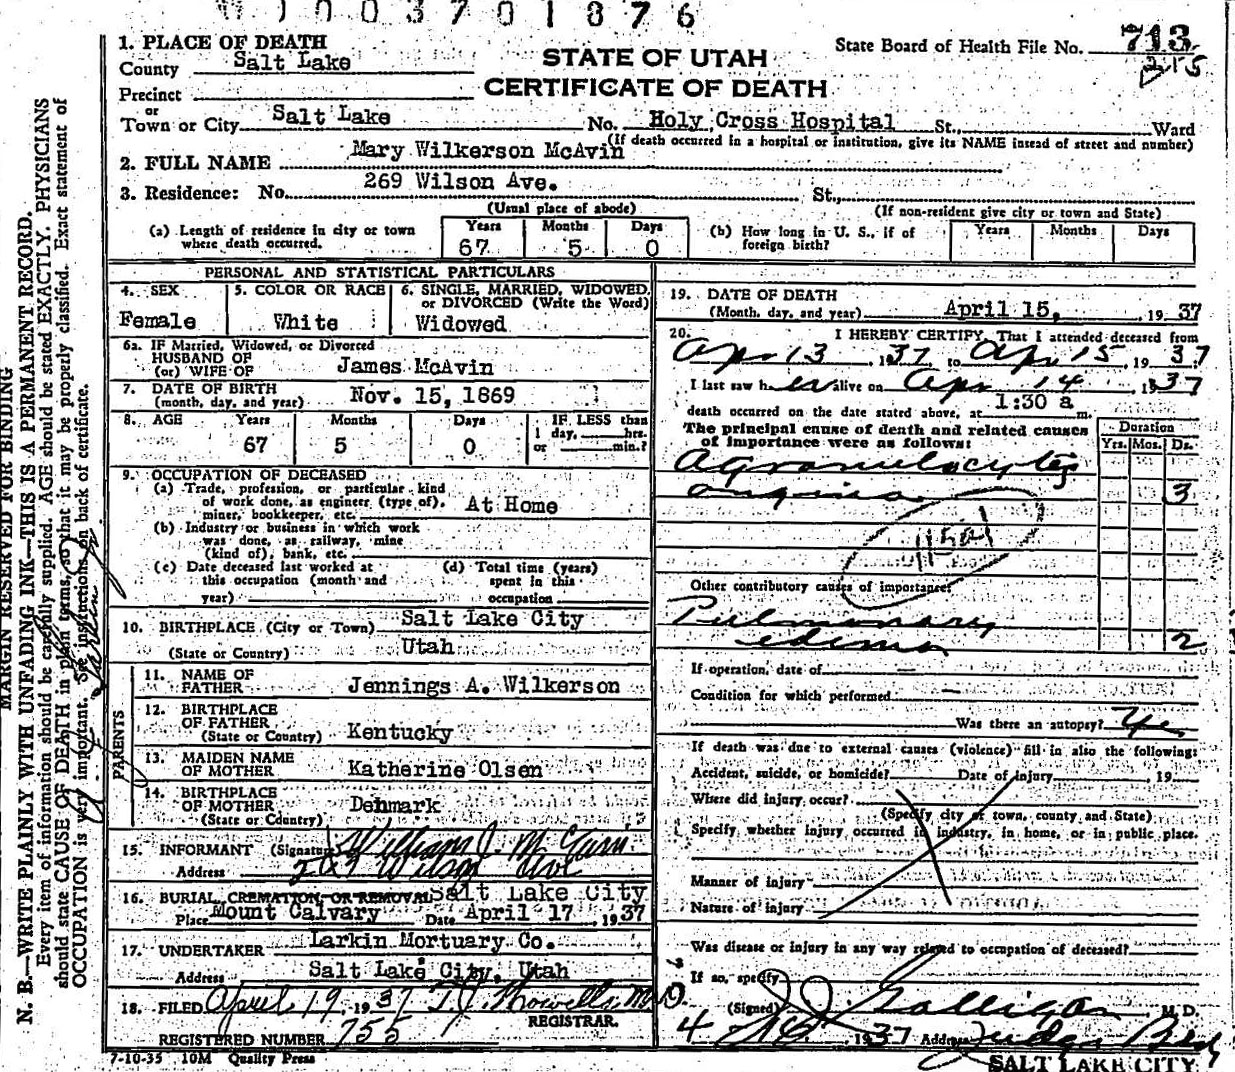 W 1 0 0 3 7 0 1 8 7 6
1. PLACE OF DEATH
County Salt Lake
STATE OF UTAH
CERTIFICATE OF DEATH
State Board of Health File No. 713
215
Precinct
or
Town or City Salt Lake No. Holy Cross Hospital St., Ward
(If death occurred in a hospital or institution, give its NAME insead of street and number)
2. FULL NAME Mary Wilkerson McAvin
3. Residence: No. 269 Wilson Ave. St.,
(Usual place of abode) (If non-resident give city or town and State)
(a) Length of residence in city or town where death occurred. Years 67 Months 5 Days 0
(b) How long in U. S., if of foreign birth? Years Months Days
PERSONAL AND STATISTICAL PARTICULARS
4. SEX Female
5. COLOR OR RACE White
6. SINGLE, MARRIED, WIDOWED, or DIVORCED (Write the Word) Widowed
6a. IF Married, Widowed, or Divorced
HUSBAND OF
(or) WIFE OF James McAvin
7. DATE OF BIRTH
(month, day, and year) Nov. 15, 1869
8. AGE Years 67 Months 5 Days 0 IF LESS than 1 day, hrs. or min.?
9. OCCUPATION OF DECEASED
(a) Trade, profession, or particular kind
of work done, as engineer (type of),
miner, bookkeeper, etc. At Home
(b) Industry or business in which work
was done, as railway, mine
(kind of), bank, etc.
(c) Date deceased last worked at
this occupation (month and
year)
(d) Total time (years)
spent in this
occupation
10. BIRTHPLACE (City or Town) Salt Lake City
(State or Country) Utah
PARENTS
11. NAME OF
FATHER Jennings A. Wilkerson
12. BIRTHPLACE
OF FATHER
(State or Country) Kentucky
13. MAIDEN NAME
OF MOTHER Katherine Olsen
14. BIRTHPLACE
OF MOTHER
(State or Country) Denmark
15. INFORMANT (Signature) William J. McAvin
Address Wilson Ave
16. BURIAL, CREMATION, OR REMOVAL Salt Lake City
Place Mount Calvary Date April 17, 1937
17. UNDERTAKER Larkin Mortuary Co.
Address Salt Lake City, Utah
18. FILED April 19, 1937 T. J. Howells M.D.
REGISTRAR.
REGISTERED NUMBER 755
7-10-35 10M Quality Press
19. DATE OF DEATH
(Month, day, and year) April 15, 1937
20. I HEREBY CERTIFY, That I attended deceased from
Apr 13, 1937 to Apr 15, 1937
I last saw her alive on Apr 14 1937
death occurred on the date stated above, at 1:30 a m.
The principal cause of death and related causes
of importance were as follows:
Duration
Yrs. Mos. Ds.
Agranulocytic
angina 3
Other contributory causes of importance:
Pulmonary
edema 2
If operation, date of —
Condition for which performed —
Was there an autopsy? Yes
If death was due to external causes (violence) fill in also the following:
Accident, suicide, or homicide? Date of injury , 19
Where did injury occur?
(Specify city or town, county and State)
Specify whether injury occurred in industry, in home, or in public place.
Manner of injury
Nature of injury
Was disease or injury in any way related to occupation of deceased?
If so, specify
(Signed) Galligan M. D.
4 1937 Address Judge Bldg
SALT LAKE CITY
MARGIN RESERVED FOR BINDING
N. B.—WRITE PLAINLY WITH UNFADING INK—THIS IS A PERMANENT RECORD.
Every item of information should be carefully supplied. AGE should be stated EXACTLY. PHYSICIANS
should state CAUSE OF DEATH in plain terms, so that it may be properly classified. Exact statement of
OCCUPATION is very important. See instructions on back of certificate.